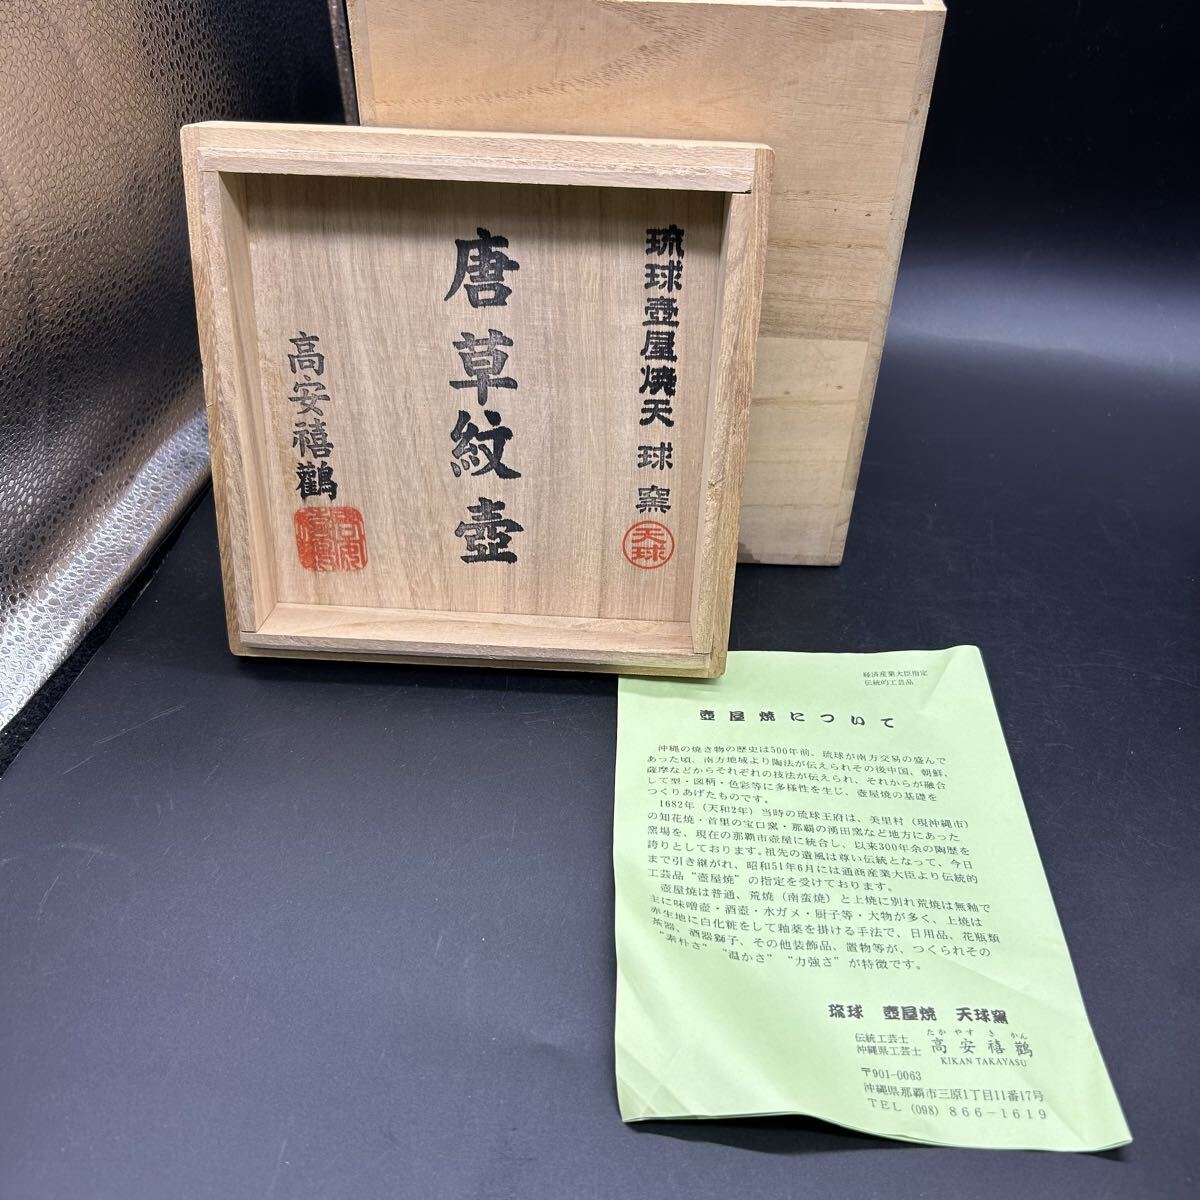 琉球壺屋焼天球窯
天球
唐草紋壺
高安禧鸛
経済産業大臣指定
伝統的工芸品
壺屋焼について
沖縄の焼き物の歴史は500年前、琉球が南方交易の盛んで
あった頃、南方地域より陶法が伝えられその後中国、朝鮮、
薩摩などからそれぞれの技法が伝えられ、それからが融合
して型・図柄・色彩等に多様性を生じ、壺屋焼の基礎を
つくりあげたものです。
1682年（天和2年）当時の琉球王府は、美里村（現沖縄市）
の知花焼・首里の宝口窯・那覇の湧田窯など地方にあった
窯場を、現在の那覇市壺屋に統合し、以来300年余の陶歴を
誇りとしております。祖先の遺風は尊い伝統となって、今日
まで引き継がれ、昭和51年6月には通商産業大臣より伝統的
工芸品“壺屋焼”の指定を受けております。
壺屋焼は普通、荒焼（南蛮焼）と上焼に別れ荒焼は無釉で
主に味噌壺・酒壺・水ガメ・厨子等・大物が多く、上焼は
赤生地に白化粧をして釉薬を掛ける手法で、日用品、花瓶類
茶器、酒器獅子、その他装飾品、置物等が、つくられその
“素朴さ”“温かさ”“力強さ”が特徴です。
琉球 壺屋焼 天球窯
たかやす きかん
伝統工芸士
沖縄県工芸士 高安禧鸛
KIKAN TAKAYASU
〒901-0063
沖縄県那覇市三原1丁目11番17号
TEL (098) 866-1619